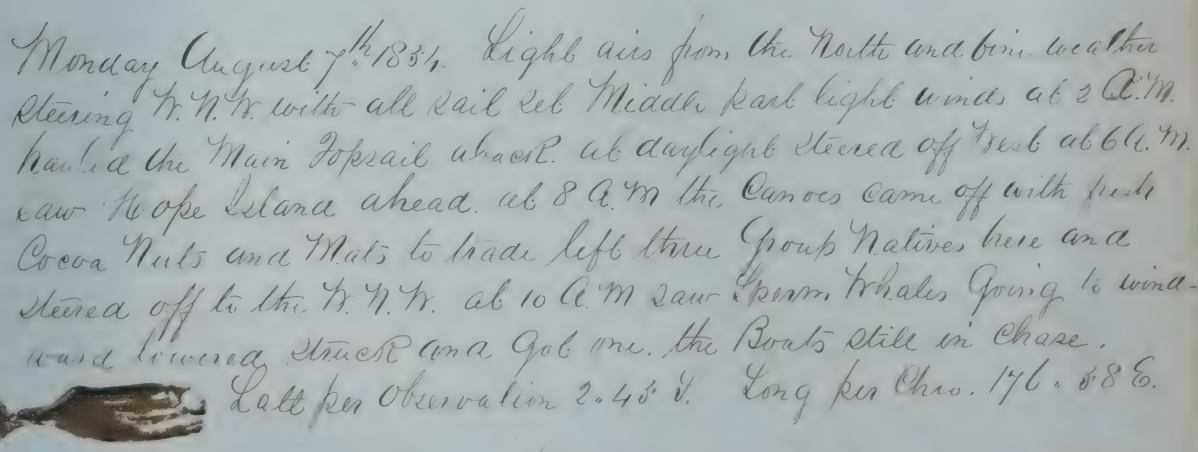 Monday August 7th 1854. Light airs from the North and fine weather
steering W.N.W. with all sail set Middle part light winds at 2 A.M.
hauled the Main Topsail aback. at daylight steered off West at 6 A.M.
saw Hope Island ahead. at 8 A.M the Canoes came off with
Cocoa Nuts and Mats to trade left three Group Natives here and
steered off to the W.N.W. at 10 A.M saw Sperm Whales Going to wind-
ward lowered struck and Got one. the Boats still in Chase.
Latt per Observation 2.45 S. Long per Chro. 176.58 E.